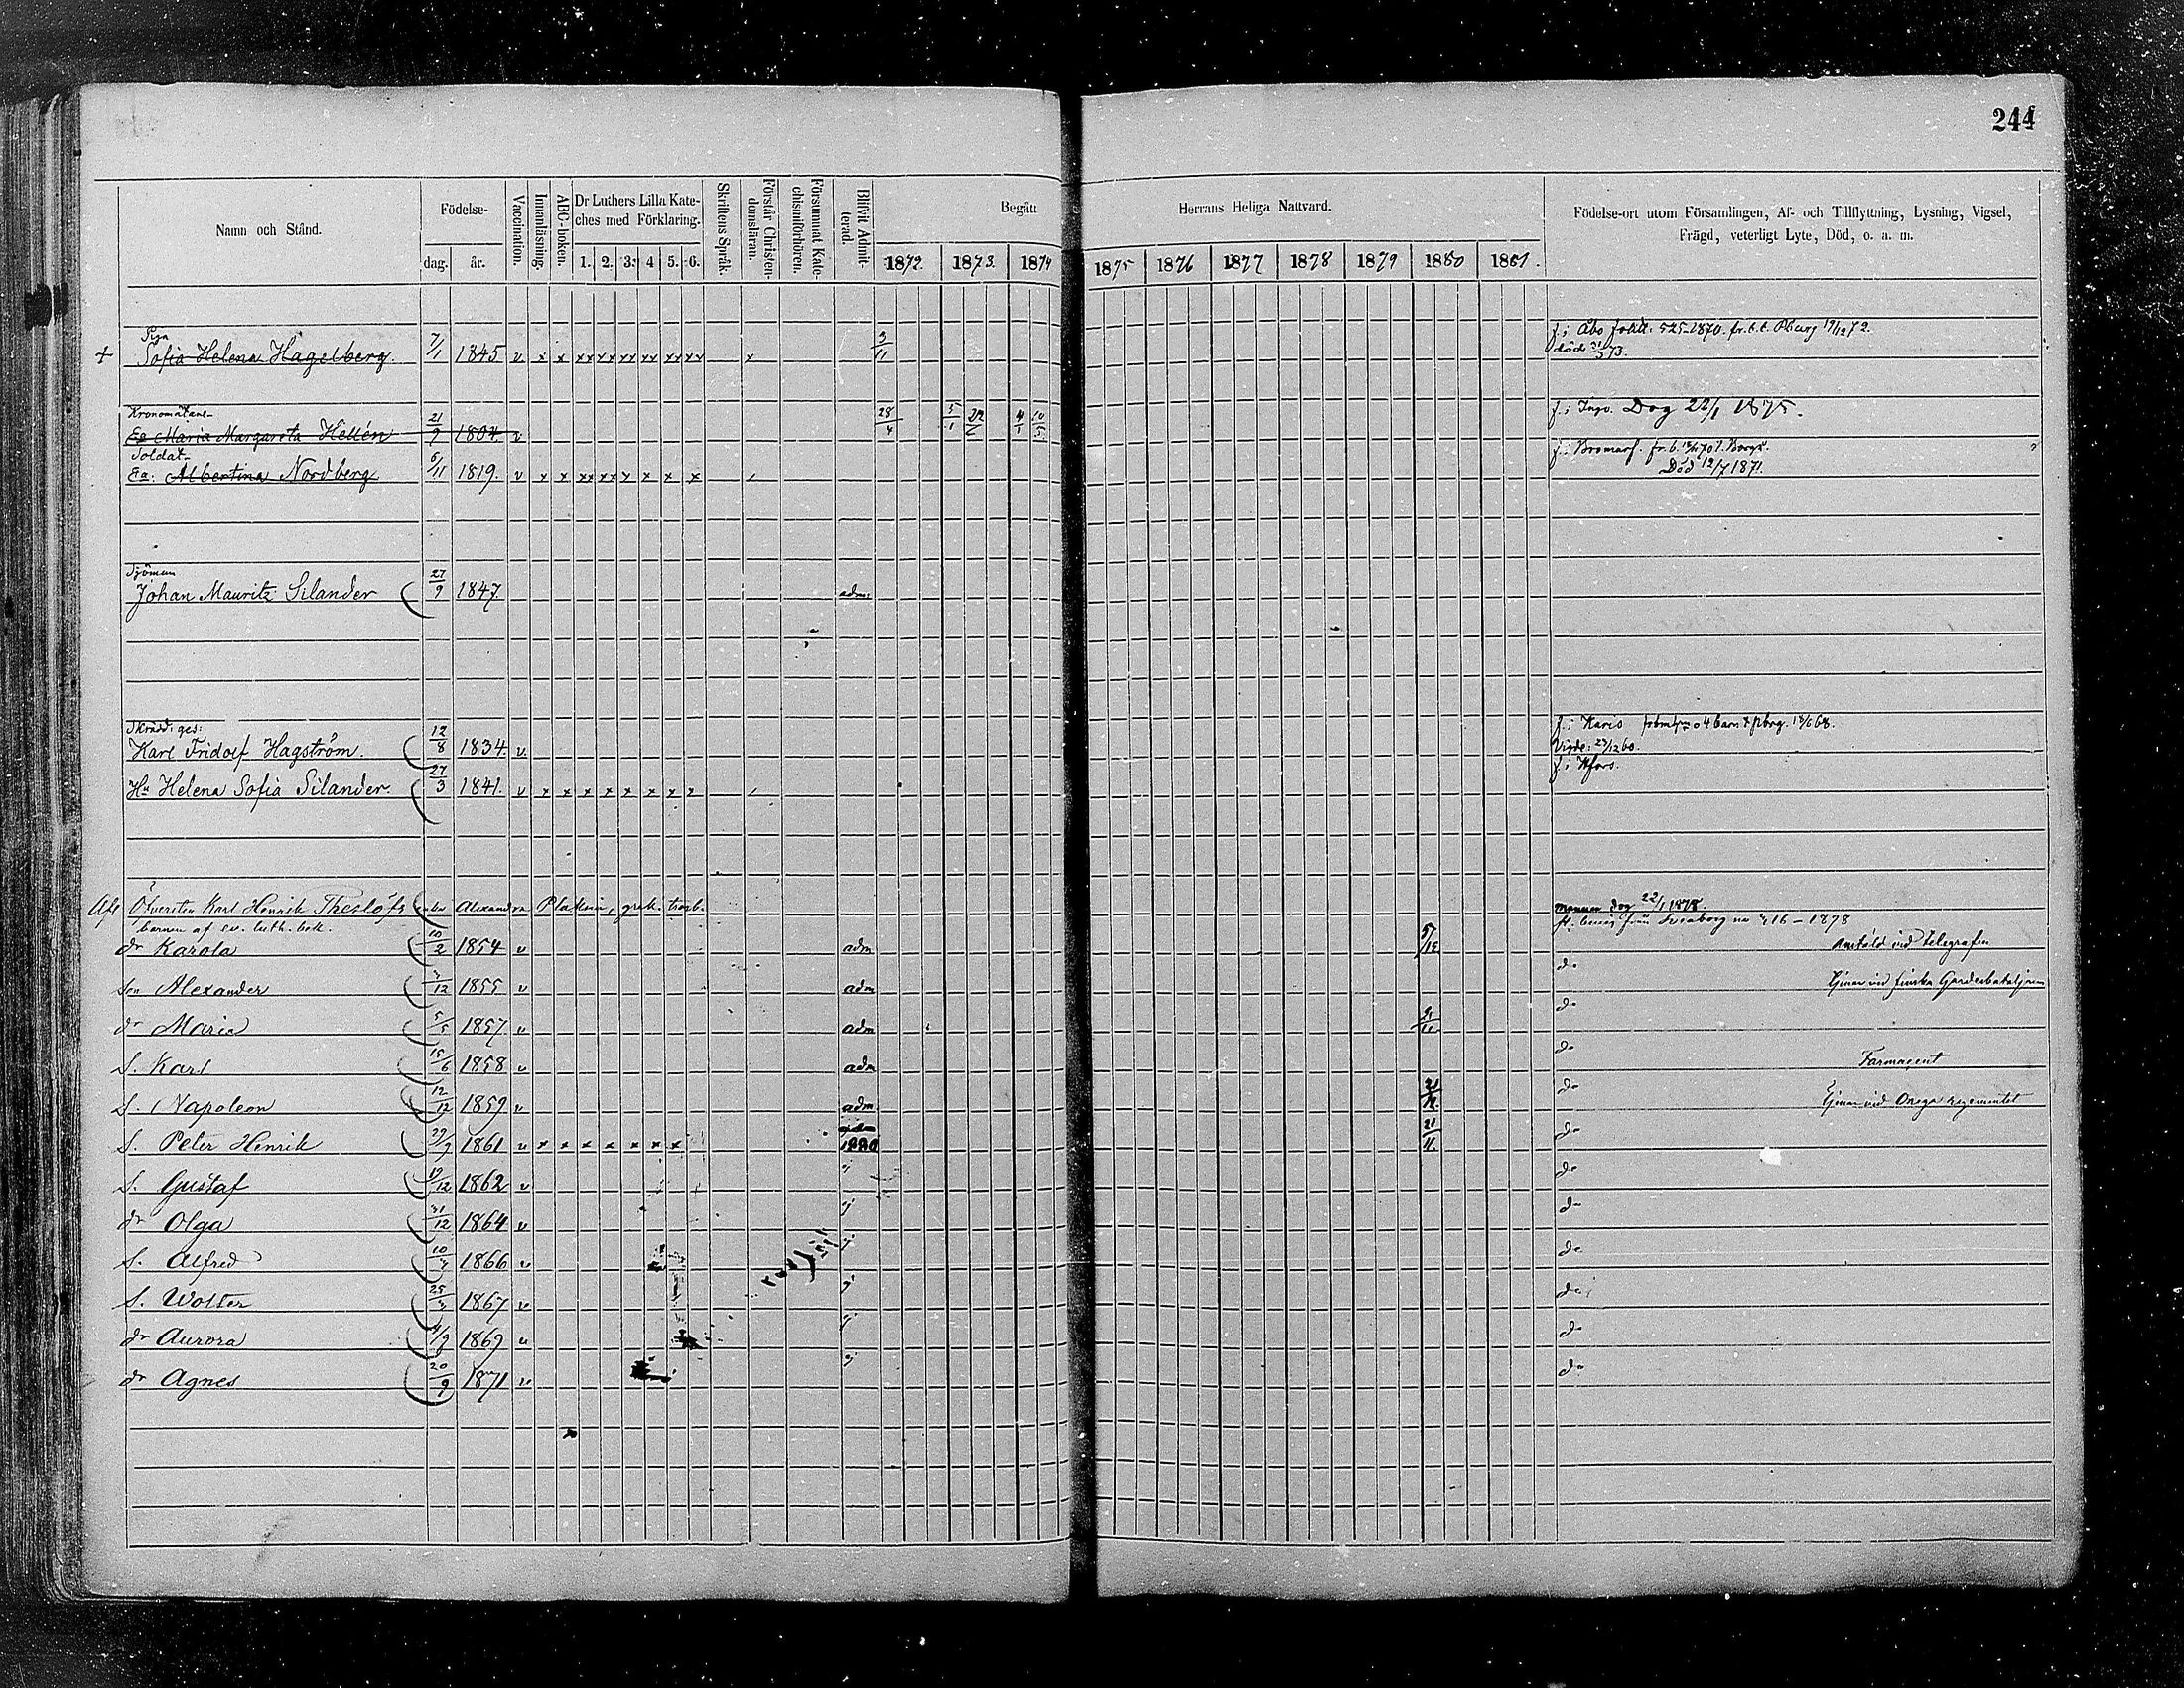 244
Namn och Stånd.
Födelse-
dag. år.
Vaccination.
Innanläsning.
ABC-boken.
Dr Luthers Lilla Kate-
ches med Förklaring.
1. 2. 3. 4 5. 6.
Skriftens Språk.
Förstår Christen-
domsläran.
Försummat Kate-
chismiförhören.
Blifvit Admit-
terad.
Begått Herrans Heliga Nattvard.
1872. 1873. 1874 1875 1876 1877 1878 1879 1880 1881.
Födelse-ort utom Församlingen, Af- och Tillflyttning, Lysning, Vigsel,
Frägd, veterligt Lyte, Död, o. a. m.
Piga
+ Sofia Helena Hagelberg. 7/1 1845 v x x xx xx xx xx xx xx 3/11 f. i Åbo
död 73.
Kronomatans-
Ea Maria Margareta Hellén 21/9 1804 v 28/4 f. i Ingo. Dog 22/1 1875.
Soldat-
Ea. Albertina Nordberg 6/11 1819. v x x xx xx x x x x f. i Bromarf.
Död 12/7 1871.
Sjöman
Johan Mauritz Silander 27/9 1847 adm:
Skrädd. ges:
Karl Fridolf Hagström. 12/8 1834 v. f. i Karis
Vigde: 23/12 60.
Hu Helena Sofia Silander. 27/3 1841. v x x x x x x x x f. i Hfors.
Öfversten Karl Henrik Theslöfs Alexandra grek. trosb. mannen dog 22/1 1878.
barnen af ev. luth. bek. 1878
dr Karola 10/2 1854 v adm Anstäld vid telegrafen
Son Alexander 1855 v adm do Tjenar vid finska Gardesbataljonen
dr Maria 5/5 1857 v adm do
S. Karl 15/6 1858 v adm do Farmaceut
S. Napoleon 12/12 1859 v adm do Tjenar vid Onega regementet
S. Peter Henrik 1861 v x x x x x x x adm 1880 21/11. do
S. Gustaf 1862 v ej do
dr Olga 31/12 1864 v ej do
S. Alfred 1866 v ej do
S. Wolter 1867 v ej do
dr Aurora 1869 v ej do
dr Agnes 20/9 1871 v ej do